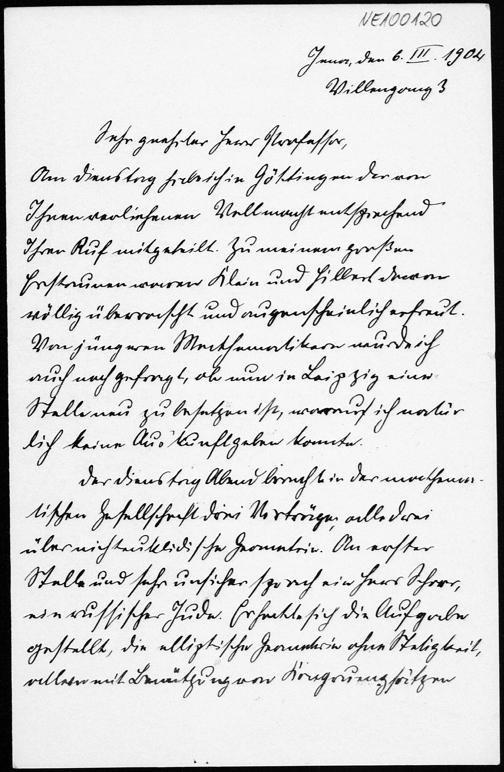 NE100120
Jena, den 6. III. 1904
Villengang 3
Sehr geehrter Herr Professor,
Am Dienstag habe ich in Göttingen der von
Ihnen verliehenen Vollmacht entsprechend
Ihren Ruf mitgeteilt. Zu meinem großen
Erstaunen waren Klein und Hilbert davon
völlig überrascht und augenscheinlich erfreut.
Von jüngeren Mathematikern wurde ich
auch noch gefragt, ob nun in Leipzig eine
Stelle neu zu besetzen ist, worauf ich natür
lich keine Auskunft geben konnte.
Der Dienstag Abend brachte in der mathema-
tischen Gesellschaft drei Vorträge, alle drei
über nichteuklidische Geometrie. An erster
Stelle und sehr unsicher sprach ein Herr Schor,
ein russischer Jude. Er hatte sich die Aufgabe
gestellt, die elliptische Geometrie ohne Stetigkeit,
allein mit Benützung von Kongruenzsätzen